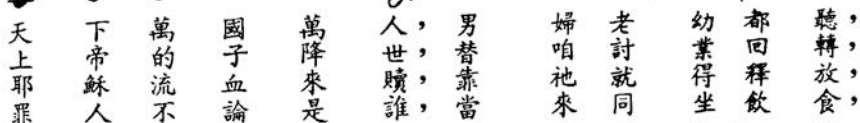 天下萬國萬人，男婦老幼都聽，
上帝的子降世，替咱討業回轉，
耶穌流血來贖，靠祂就得釋放，
罪人不論是誰，當來同坐飲食，